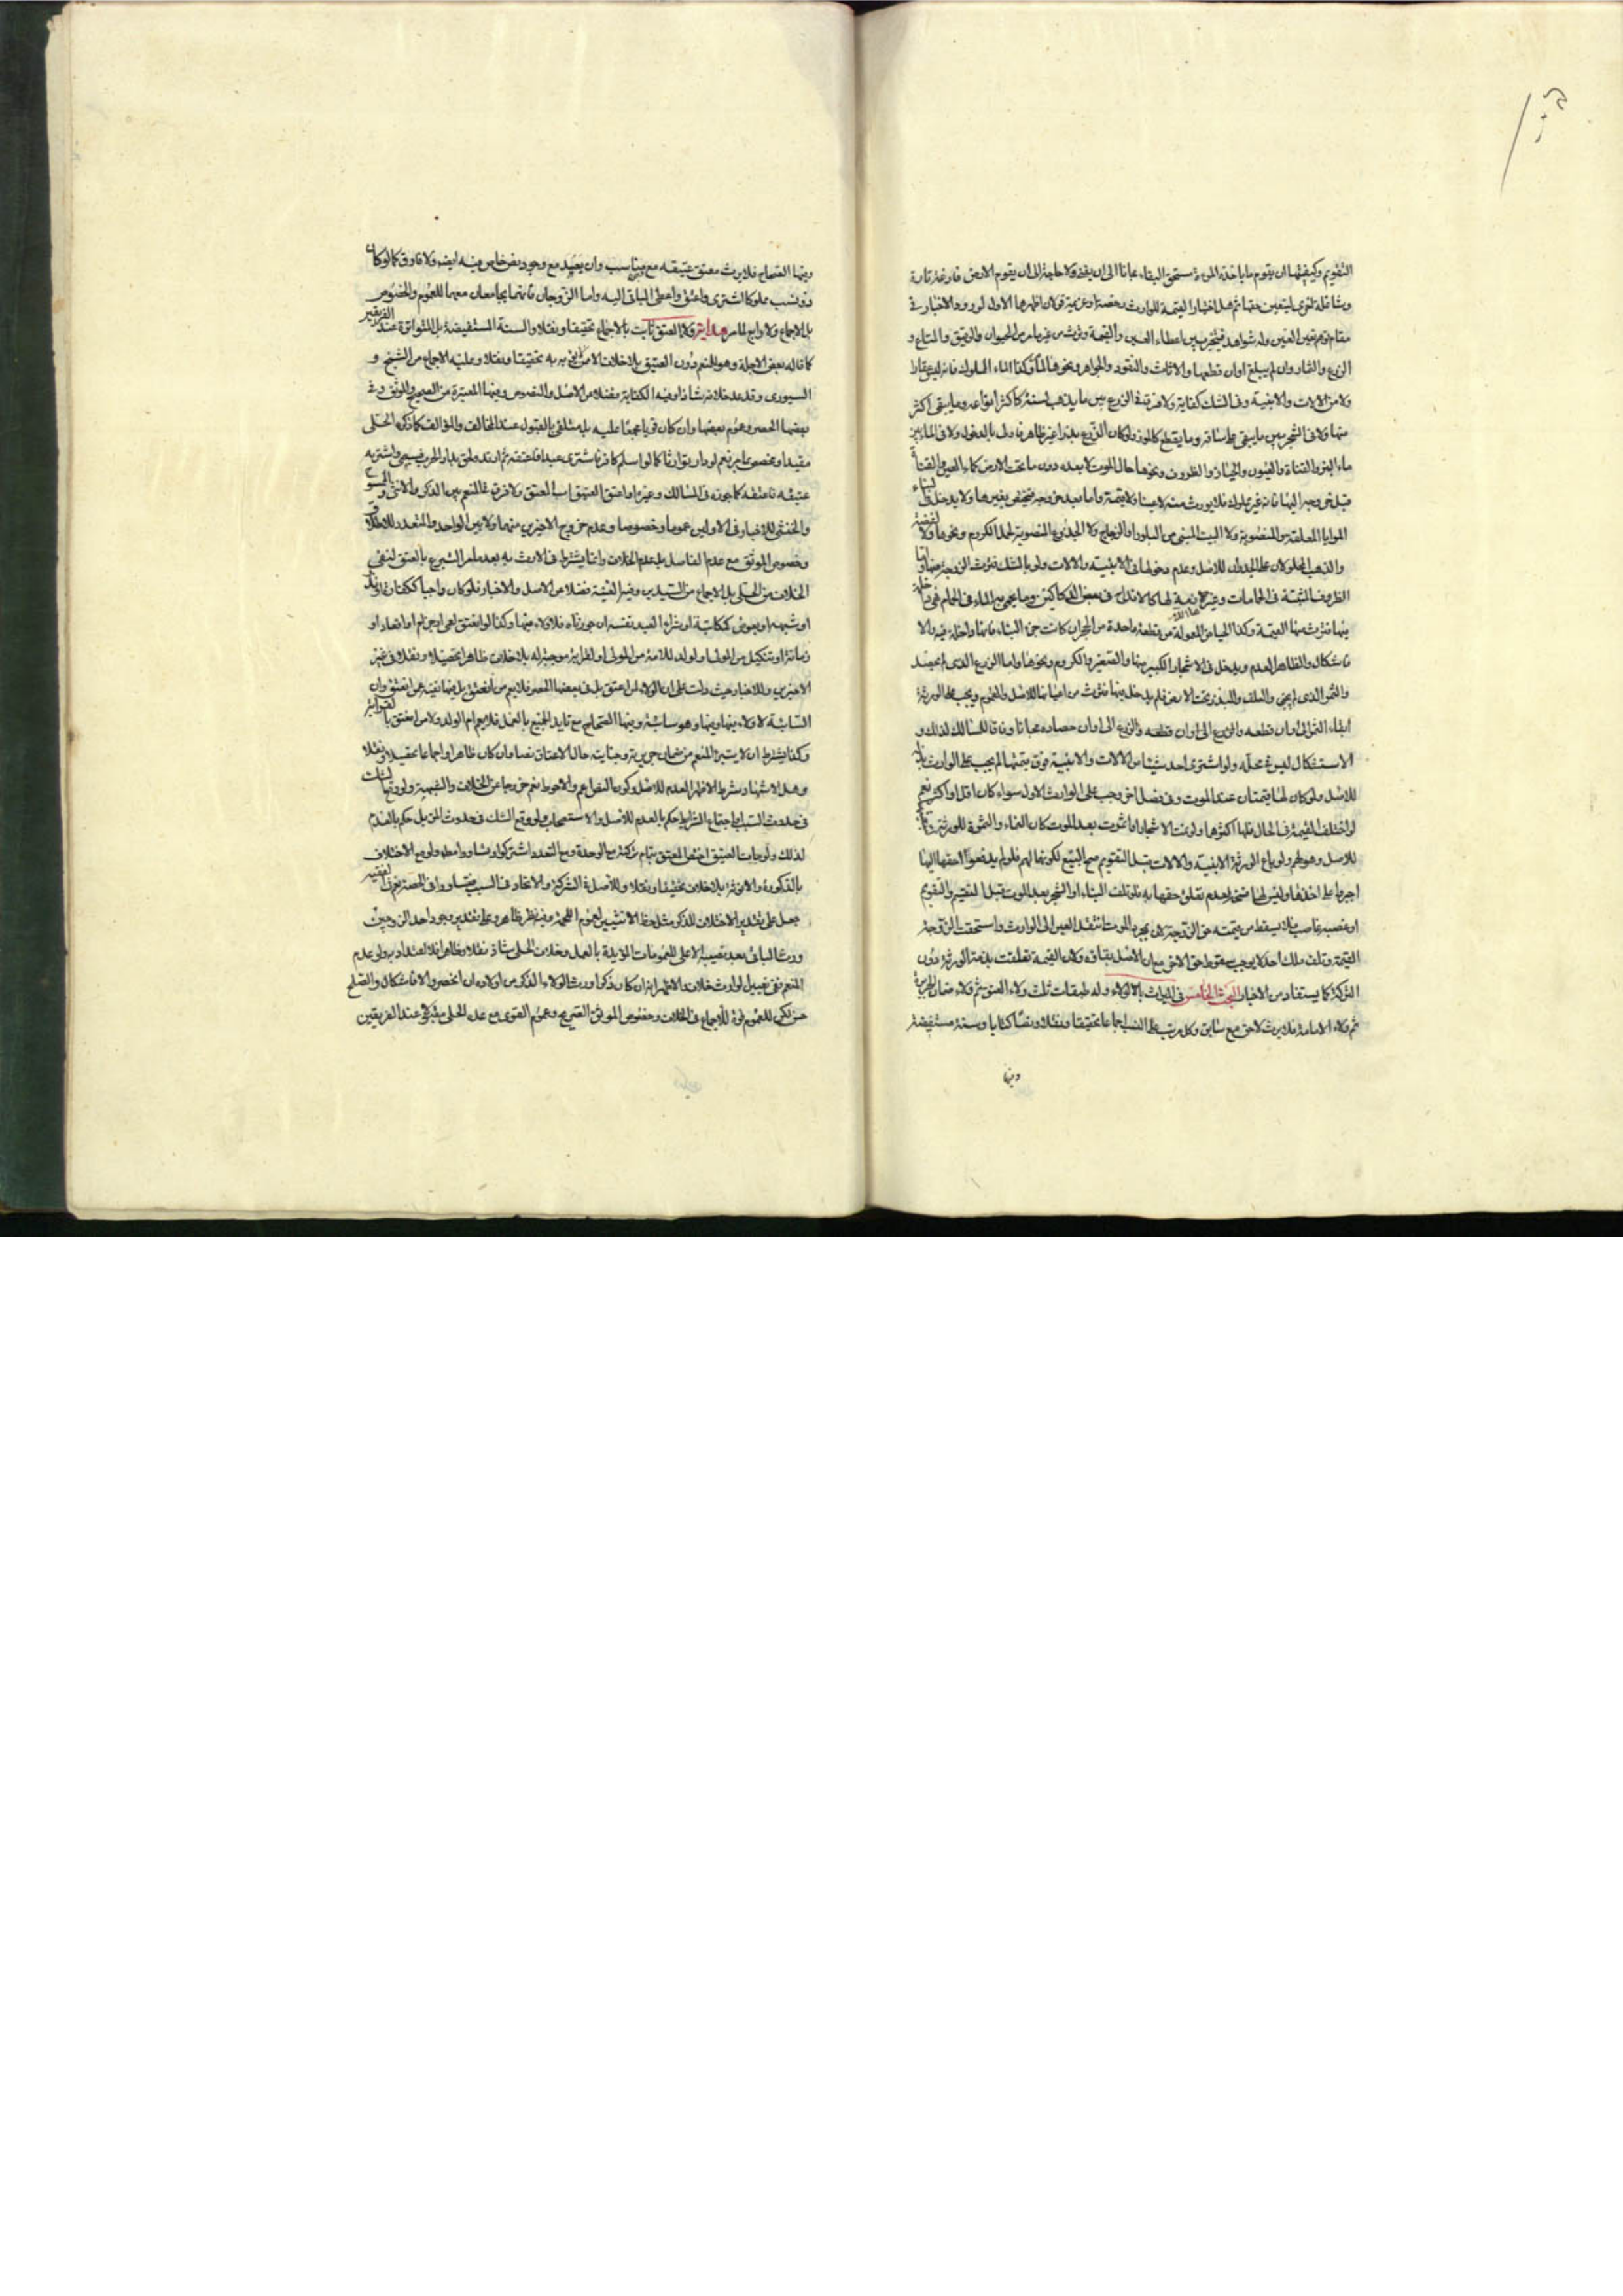 التقويم وكيفيتها ان يقوم ما ياخذه المرءة مستحق البقاء مجانا الى ان يفنى ولا حاجة الى ان يقوم الارض فارغة تارة
ومشاغلة اخرى ليتعين حقها ثم هل اختيار القيمة للوارث رخصة او عزيمة قولان اظهرهما الاول لورود الاخبار في
مقام توهم تعين العين وله شواهد فيتخير بين اعطاء العين والقيمة وترث من غير ما مر من الحيوان والرقيق والمتاع و
الزرع والثمار وان لم يبلغ اوان قطعها والاثاث والنقود والجواهر ونحوها وكذا الماء المملوك فانه ليس عقارا
ولا من الالات والابنية وفي الشك كفاية ولا فرق في الزرع بين ما يذهب لسنة كاكثر انواعه وما يبقى اكثر
منها ولا في الشجر بين ما يبقى على ساقه وما يقطع كالموز ولو كان الزرع بذرا غير ظاهر ولا في الماء بين
ماء البئر والقناة والعيون والحياض والظروف ونحوها حال الموت لا بعده دون ما تحت الارض كماء العين والقناة
قبل خروجه اليها فانه غير مملوك فلا يورث منه لا عينا ولا قيمة واما بعد خروجه فيختص بغيرها ولا يدخل في البناء
المرايا المعلقة والمنصوبة ولا البيت المبني من البلور او الزجاج ولا الجذوع المنصوبة لحمل الكروم ونحوها ولا الفضة
والذهب المحلو كان على الجدران للاصل وعدم دخولها في الابنية والالات ولو بالشك فترث الزوجة منها واما
الظروف المثبتة في الحمامات وغيرها
فيها فترث منها القيمة وكذا الحياض المعمولة من قطعة واحدة من الحجر ان كانت جزء البناء فانها داخلة فيه والا
فاشكال والظاهر العدم ويدخل في الاشجار الكبير منها والصغير والكروم ونحوها واما الزرع الذي لم يحصد
والثمر الذي لم يجن والعلف والبذر تحت الارض فلم يدخل فيها فترث من اعيانها للاصل والعموم ويجب على الورثة
ابقاء الثمر الى اوان قطعه والزرع الى اوان قطعه والزرع الى اوان حصاده مجانا وفاقا للمسالك لذلك و
الاستشكال ليس في محله ولو اشترى احد شيئا من الالات والابنية فوق قيمتها لم يجب على الوارث بذله
للاصل ولو كان لها قيمتان عند الموت وفي فصل اخر وجب على الوارث الاول سواء كان اقل او اكثر نعم
لو اختلف القيمة في الحال فلها اكثرها ولو نمت الاشجار او اثمرت بعد الموت كان النماء والثمرة للورثة
للاصل وهو لهم ولو باع الورثة الابنية والالات قبل التقويم صح البيع لكونها لهم فلو لم يدفعوا حقها اليها
اجبروا على اخذها وليس لها فسخه لعدم تعلق حقها به فلو تلف البناء او الشجر بعد الموت قبل التقسيم والتقويم
او غصبه غاصب فلا يسقط من قيمته حق الزوجة لان بمجرد الموت انتقل العين الى الوارث واستحقت الزوجة
القيمة وتلف ملك احد لا يوجب سقوط حق الاخر مع ان الاصل بقائه ولان القيمة تعلقت بذمة الورثة دون
التركة كما يستفاد من الاخبار البحث الخامس في الميراث بالولاء وله طبقات ثلث ولاء العتق ثم ولاء ضمان الجريرة
ثم ولاء الامامة فلا يرث لاحق مع سابق وكل مرتب على النسب اجماعا تحقيقا ونقلا ونصا كتابا وسنة مستفيضة
وفيها
وفيها الصحاح فلا يرث معتق عتيقه مع مناسب وان يعيد مع وجود نص خاص فيه ايضا ولا فارق كما لو كان
ذو نسب مملوكا اشترى واعتق واعطى الباقي اليه واما الزوجان فانهما يجامعان معهما للعموم والخصوص
بالاجماع ولا رابع لما مر هداية ولاء العتق ثابت بالاجماع تحقيقا ونقلا والسنة المستفيضة بل المتواترة عند الفريقين
كما قاله بعض الاجلة وهو للمنعم دون العتيق بلا خلاف
السيوري وقد عد خلافه شاذا وفيه الكفاية فضلا عن الاصل والنصوص وفيها المعتبرة من الصحيح والموثق وفي
بعضها الحصر وعموم بعضها وان كان قويا مجمعا عليه بل متلقى بالقبول عند المخالف والمؤالف كما ذكره الحلي
عتيقه فاعتقه كما جوزه في المسالك وغيره او اعتق العتيق اب المعتق ولا فرق في المنعم بين الذكر والانثى و
والخنثى للاخبار في الاولين عموما وخصوصا وعدم خروج الاخيرين منهما ولا بين الواحد والمتعدد للاطلاق
وخصوص الموثق مع عدم الفاصل بل عدم الخلاف وانما يشترط في الارث به بعد ما مر التبرع بالعتق لنفي
الخلاف من الحلي بل الاجماع من السيدين وفي الغنية فضلا عن الاصل والاخبار فلو كان واجبا ككفارة او نذر
او شبهه او بعوض ككتابة او شراء العبد نفسه ان جوزناه فلا ولاء فيهما وكذا لو انعتق لعمى او جذام او اقعاد او
زمانة او تنكيل من المولى او لولد للامة من المولى او القرابة موجبة له بلا خلاف ظاهر تحصيلا ونقلا في غير
الاخيرين وللاخبار حيث دلت على ان الولاء لمن اعتق بل في بعضها الحصر فلا يعم من انعتق بل فيها نفيه عن انعتق وان
السائبة لا ولاء فيها ومنها وهو سائبة وفيها الصحاح مع تايد الجميع بالعمل فلا يعم ام الولد ولا من اعتق بالقرابة
وكذا يشترط ان لا يتبرء المنعم من ضمان جريرته وجنايته حال الاعتاق نصا وان كان ظاهرا واجماعا تحصيلا ونقلا
وهل الاشهاد شرط الاظهر العدم للاصل وكون النص اعم والاحوط نعم خروجا عن الخلاف والشبهة ولو وقع الشك
في حدوث السبب او اجتماع الشرايط حكم بالعدم للاصل والاستصحاب ولو وقع الشك في حدوث المزيل حكم بالعدم
لذلك ولو مات العتيق اختص المعتق بتمام تركته مع الوحدة ومع التعدد اشتركوا وتساووا مطلقا ولو مع الاختلاف
بالذكورة والانوثة بلا خلاف تحقيقا ونقلا وللاصل في الشركة والاتحاد في السبب فتساووا في الحصة نعم
جعل على تقدير الاختلاف للذكر مثل حظ الانثيين لعموم اللحمة وفيه نظر ظاهر وعلى تقدير وجود احد الزوجين
ورث الباقي بعد نصيبه الاعلى للعمومات المؤيدة بالعمل وخلاف الحلبي شاذ نقلا وظاهرا فلا اعتداد به ولو عدم
المنعم ففي تعيين الوارث خلاف والاظهر انه ان كان ذكرا ورث الولاء الذكور من اولاده ان انحصروا والا فاشكال والصلح
حسن لكن للعموم قوة للاجماع في الخلاف وخصوص الموثق الصريح وعموم القوي مع عد الحلي متلقى عند الفريقين